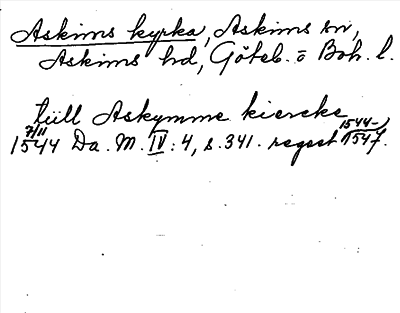 Askims kyrka, Askims sn,
Askims hd, Göteb. o Boh. l.
tiill Askymme kiercke
7/11 1544-
1544 Da. M. IV: 4, s. 341. regest 1547.